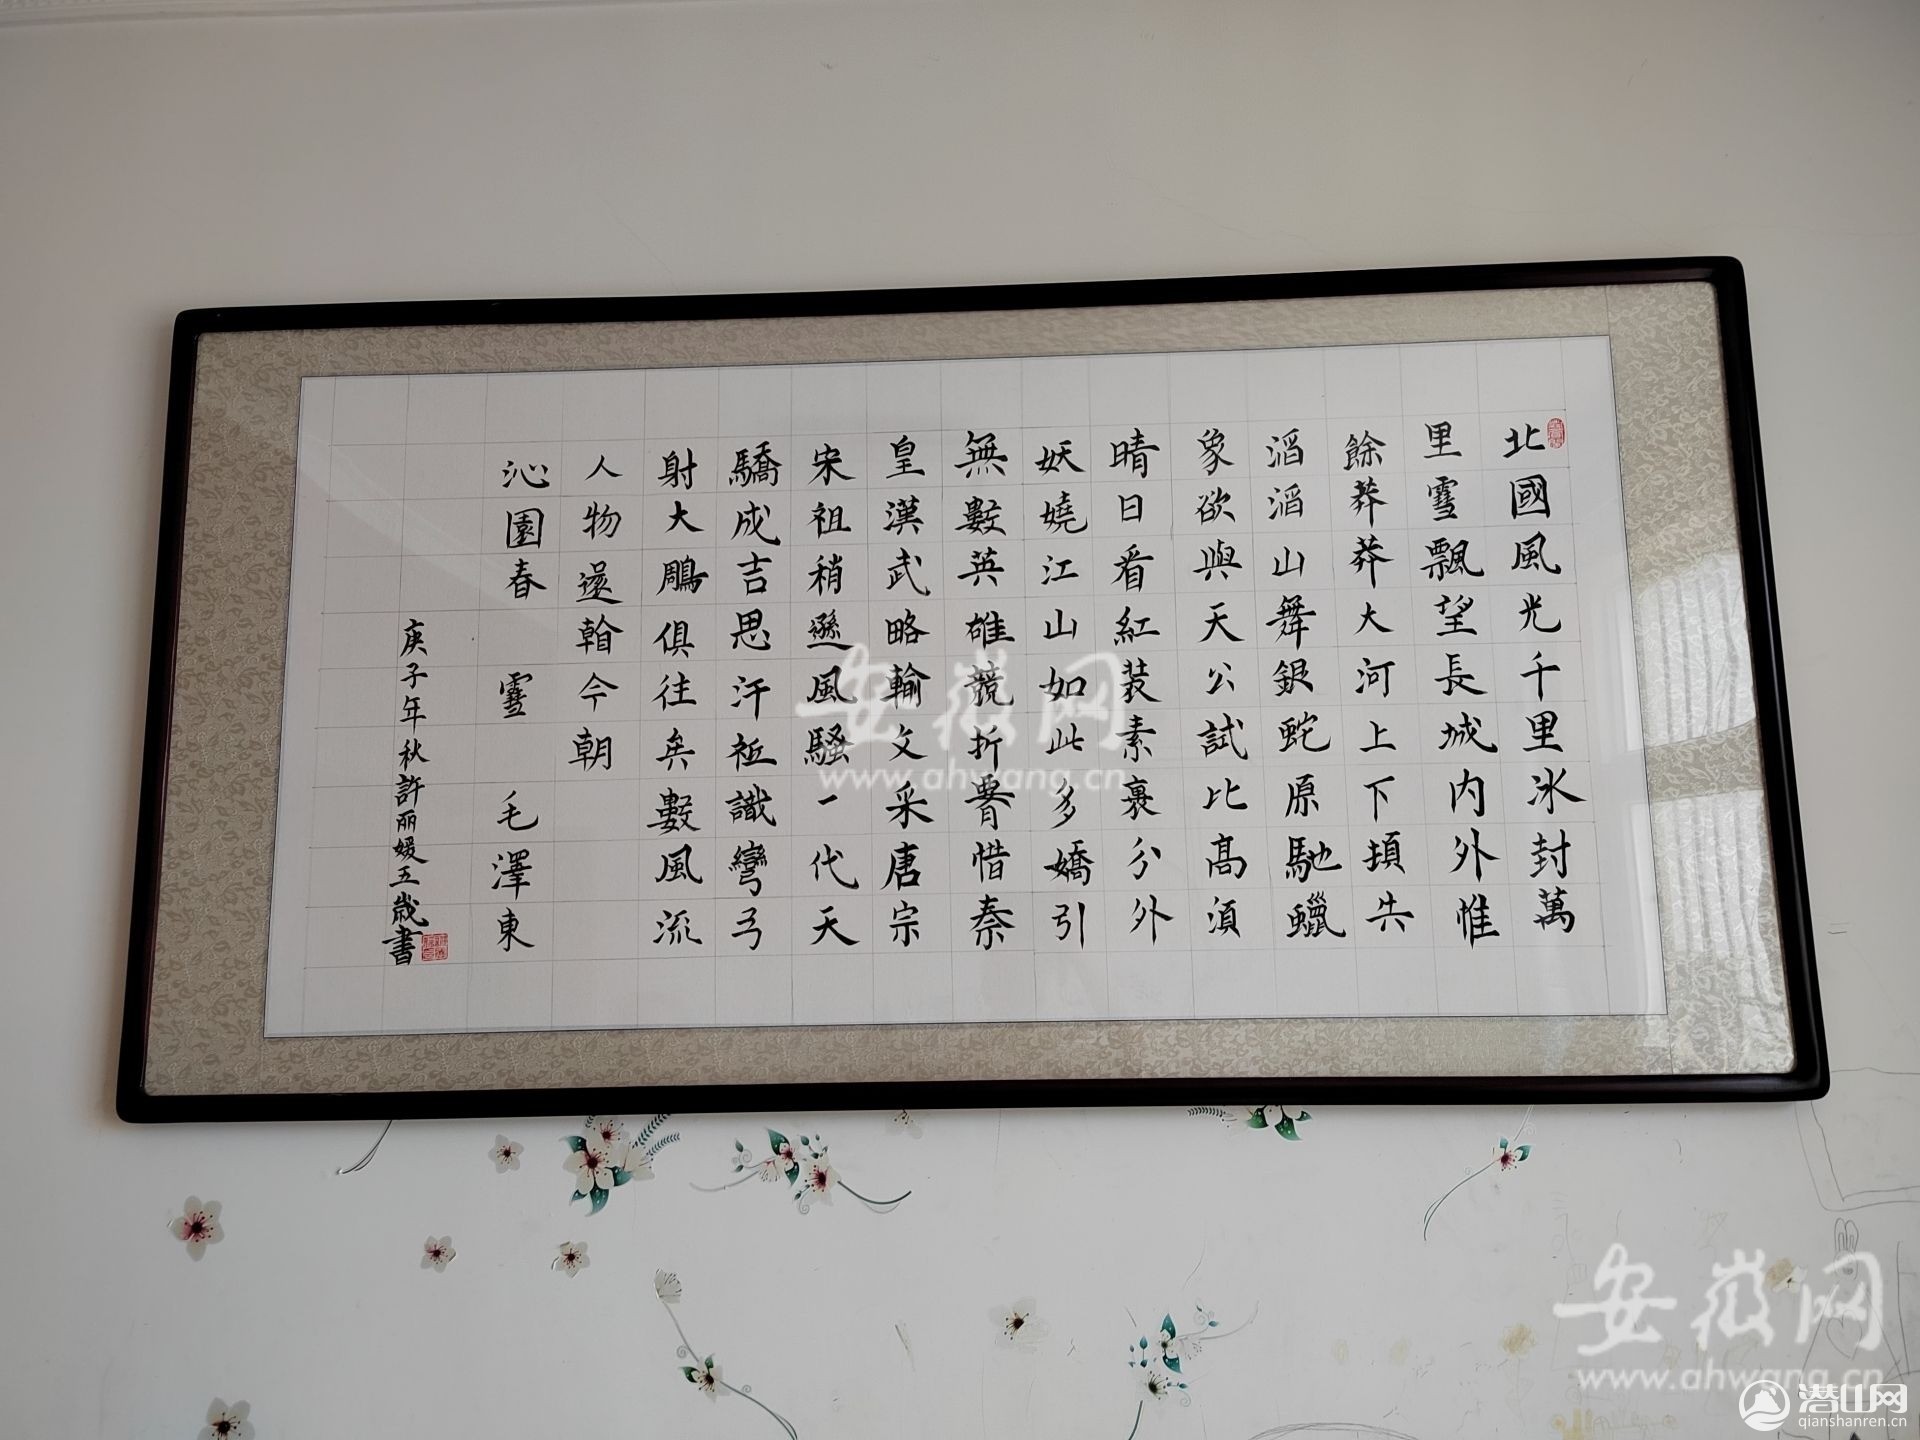 北國風光千里冰封萬
里雪飄望長城内外惟
餘莽莽大河上下頓失
滔滔山舞銀蛇原馳蠟
象欲與天公試比高須
晴日看紅装素裹分外
妖嬈江山如此多嬌引
無數英雄競折腰惜秦
皇漢武略輸文采唐宗
宋祖稍遜風騷一代天
驕成吉思汗祗識彎弓
射大鵰俱往矣數風流
人物還翰今朝
沁園春 雪 毛澤東
庚子年秋許丽媛五歲書
安徽网
www.ahwang.cn
安徽网
www.ahwang.cn
潜山网
qianshanren.cn